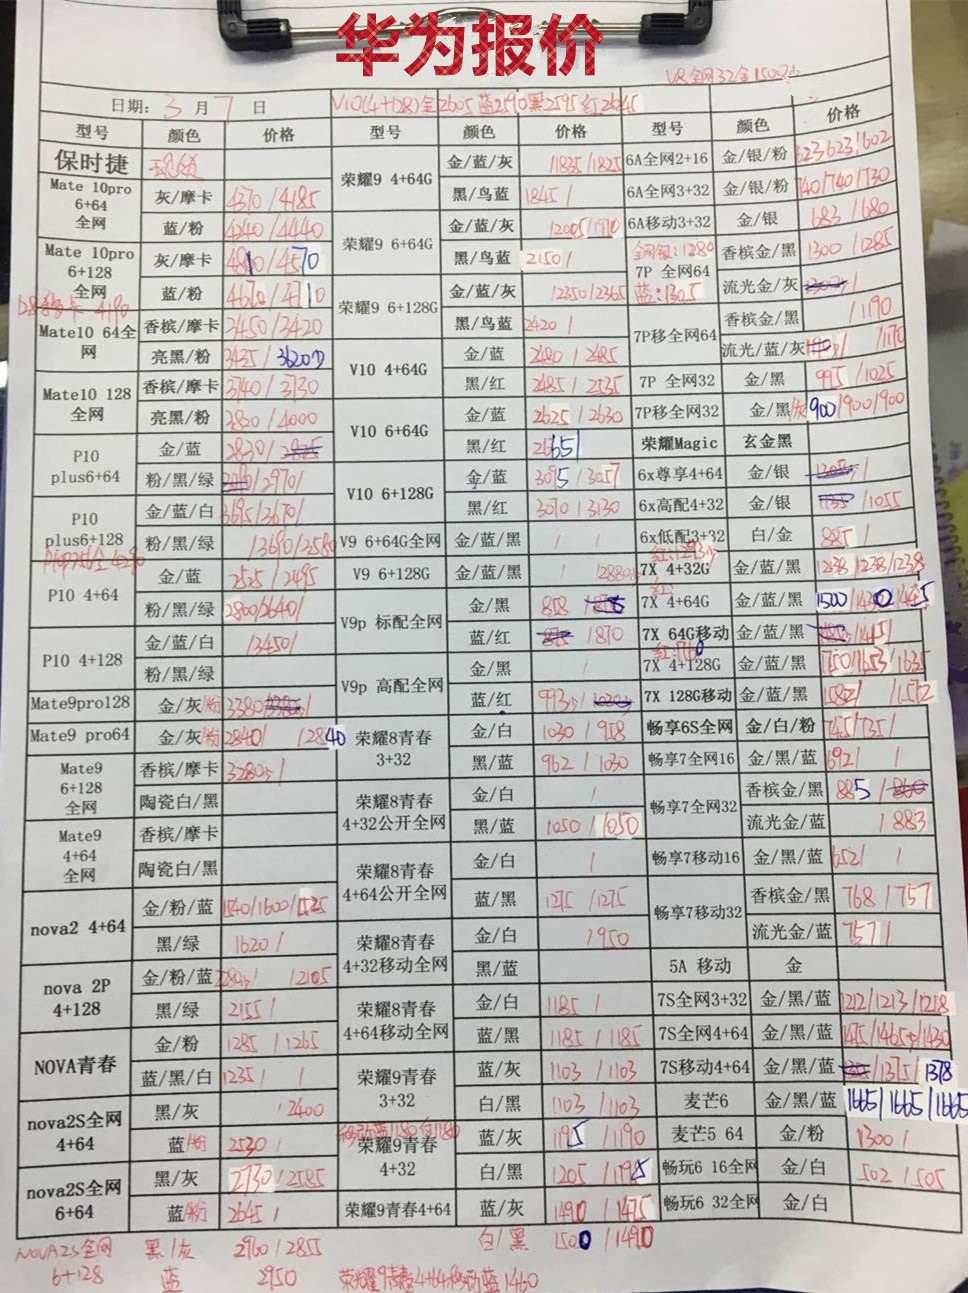 华为报价
V8全网32金1500
日期: 3 月 7 日 V10(4+128)金2605 蓝2590 黑2595 红2645
型号 颜色 价格 型号 颜色 价格 型号 颜色 价格
保时捷
荣耀9 4+64G 金/蓝/灰 1835/1825 6A全网2+16 金/银/粉 623 623/602
Mate 10pro 6+64 全网 灰/摩卡 4370/4185 黑/鸟蓝 1845/ 6A全网3+32 金/银/粉 740/740/730
蓝/粉 4240/4440 荣耀9 6+64G 金/蓝/灰 6A移动3+32 金/银 683/680
Mate 10pro 6+128 全网 灰/摩卡 4810/4570 黑/鸟蓝 2150/ 全网银:1280 7P 全网64 蓝:1305 香槟金/黑 1300/1285
蓝/粉 4670/4710 荣耀9 6+128G 金/蓝/灰 2350/2365 流光金/灰
4190
Mate10 64全网 香槟/摩卡 3450/3420 黑/鸟蓝 2420/ 7P移全网64 香槟金/黑 /1190
亮黑/粉 3435/3620 V10 4+64G 金/蓝 2480/2485 流光/蓝/灰 /1170
Mate10 128全网 香槟/摩卡 3740/3730 黑/红 2485/2535 7P 全网32 金/黑 995/1025
亮黑/粉 3820/4000 V10 6+64G 金/蓝 2625/2630 7P移全网32 金/黑/灰 900/900/900
P10 plus6+64 金/蓝 2830/ 黑/红 2665/ 荣耀Magic 玄金黑
粉/黑/绿 /2970/ V10 6+128G 金/蓝 3095/3057 6x尊享4+64 金/银
P10 plus6+128 金/蓝/白 3695/3670/ 黑/红 3070/3130 6x高配4+32 金/银 /1055
粉/黑/绿 /3690/3580 V9 6+64G全网 金/蓝/黑 / / 6x低配3+32 白/金 885/
P10 4+64 金/蓝 2525/2495 V9 6+128G 金/蓝/黑 /2880 7X 4+32G 金/蓝/黑 1238/1238/1238
粉/黑/绿 2800/2640/ V9p 标配全网 金/黑 858/ 7X 4+64G 金/蓝/黑
P10 4+128 金/蓝/白 /3450/ 蓝/红 /870 7X 64G移动 金/蓝/黑
粉/黑/绿 V9p 高配全网 金/黑 / 7X 4+128G 金/蓝/黑 1650/1653/1635
Mate9pro128 金/灰/粉 3380/ 蓝/红 993/ 7X 128G移动 金/蓝/黑 1582/ /1572
Mate9 pro64 金/灰/粉 2840/ /2840 荣耀8青春 3+32 金/白 1030/958 畅享6S全网 金/白/粉 745/735/
Mate9 6+128 全网 香槟/摩卡 3280/ 黑/蓝 962/1030 畅享7全网16 金/黑/蓝 692/ /
陶瓷白/黑 荣耀8青春 4+32公开全网 金/白 / 畅享7全网32 香槟金/黑 885/
Mate9 4+64 全网 香槟/摩卡 黑/蓝 1050/1050 流光金/蓝 /883
陶瓷白/黑 荣耀8青春 4+64公开全网 金/白 / 畅享7移动16 金/黑/蓝 652/ /
nova2 4+64 金/粉/蓝 1540/1600/1525 蓝/黑 1275/1275 畅享7移动32 香槟金/黑 768/757
黑/绿 1620/ 荣耀8青春 4+32移动全网 金/白 /950 流光金/蓝 757/
nova 2P 4+128 金/粉/蓝 /2105 黑/蓝 5A 移动 金
黑/绿 2155/ 荣耀8青春 4+64移动全网 金/白 1185/ 7S全网3+32 金/黑/蓝 1212/1213/1218
NOVA青春 金/粉 1285/1265 蓝/黑 1185/1185 7S全网4+64 金/黑/蓝
蓝/黑/白 1235/ / 荣耀9青春 3+32 蓝/灰 1103/1103 7S移动4+64 金/黑/蓝 /1375/1378
nova2S全网 4+64 黑/灰 /2400 白/黑 1103/1103 麦芒6 金/黑/蓝 1665/1665/1665
蓝/粉 2530/ 荣耀9青春 4+32 蓝/灰 1195/1190 麦芒5 64 金/粉 1300/
nova2S全网 6+64 黑/灰 2730/2585 白/黑 1205/1195 畅玩6 16全网 金/白 502/505
蓝/粉 2645/ 荣耀9青春4+64 蓝/灰 1490/1475 畅玩6 32全网 金/白
NOVA2S全网 黑/灰 2960/2855 白/黑 1500/1490
6+128 蓝 2950 荣耀9青春4+64移动蓝1460